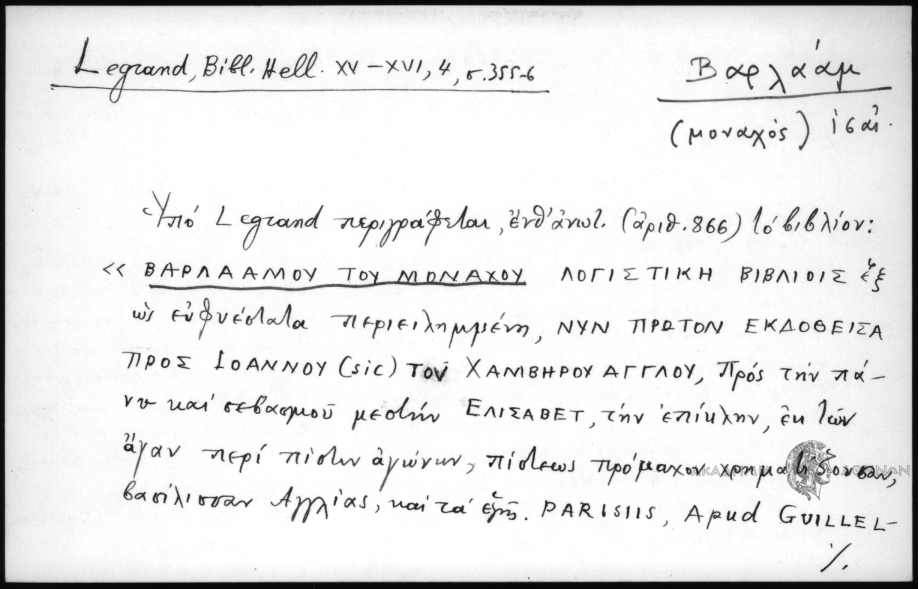 Legrand, Bibl. Hell. XV–XVI, 4, σ. 355-6
Βαρλάαμ
(μοναχός) ις αἰ.
Ὑπό Legrand περιγράφεται, ἔνθ' ἀνωτ. (ἀριθ. 866) τό βιβλίον:
<< ΒΑΡΛΑΑΜΟΥ ΤΟΥ ΜΟΝΑΧΟΥ ΛΟΓΙΣΤΙΚΗ ΒΙΒΛΙΟΙΣ ἕξ
ὡς εὐφυέστατα περιειλημμένη, ΝΥΝ ΠΡΩΤΟΝ ΕΚΔΟΘΕΙΣΑ
ΠΡΟΣ ΙΟΑΝΝΟΥ (sic) ΤΟΥ ΧΑΜΒΗΡΟΥ ΑΓΓΛΟΥ, Πρός τήν πά-
νυ καί σεβασμοῦ μεστήν ΕΛΙΣΑΒΕΤ, τήν ἐπίκλην, ἐκ τῶν
ἄγαν περί πίστιν ἀγώνων, πίστεως πρόμαχον χρηματίζουσαν,
βασίλισσαν Αγγλίας, καί τά ἑξῆς. PARISIIS, Apud GUILLEL-
./.